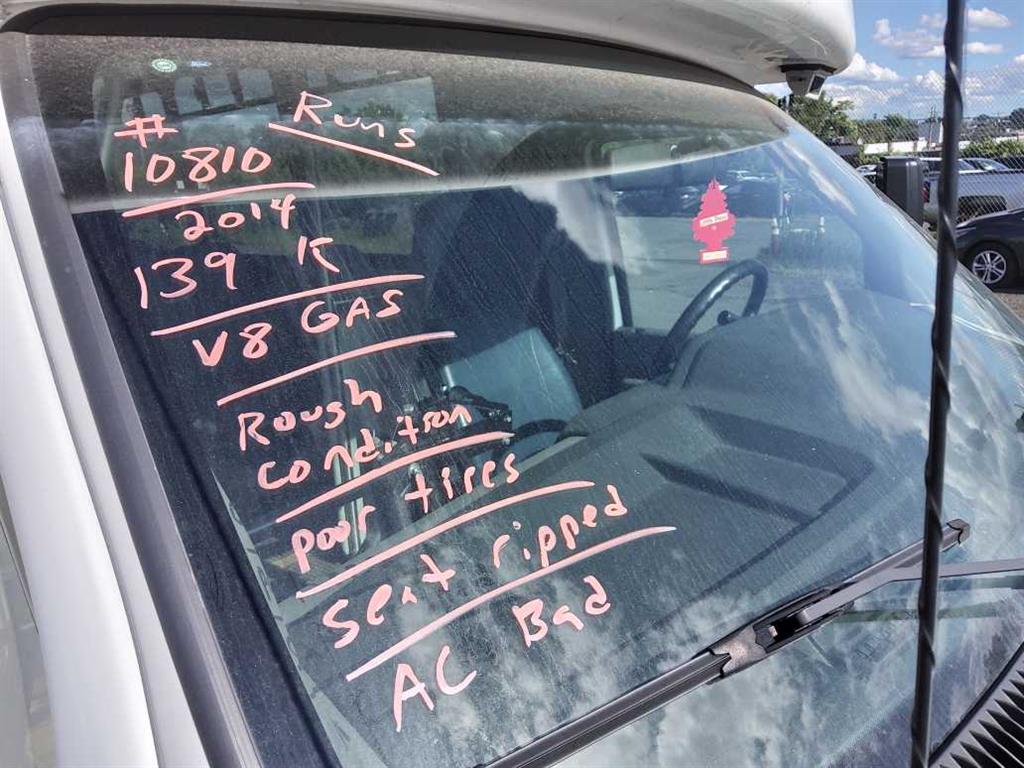 # Runs
10810
2014
139 K
V8 GAS
Rough
condition
poor tires
Seat ripped
AC Bad